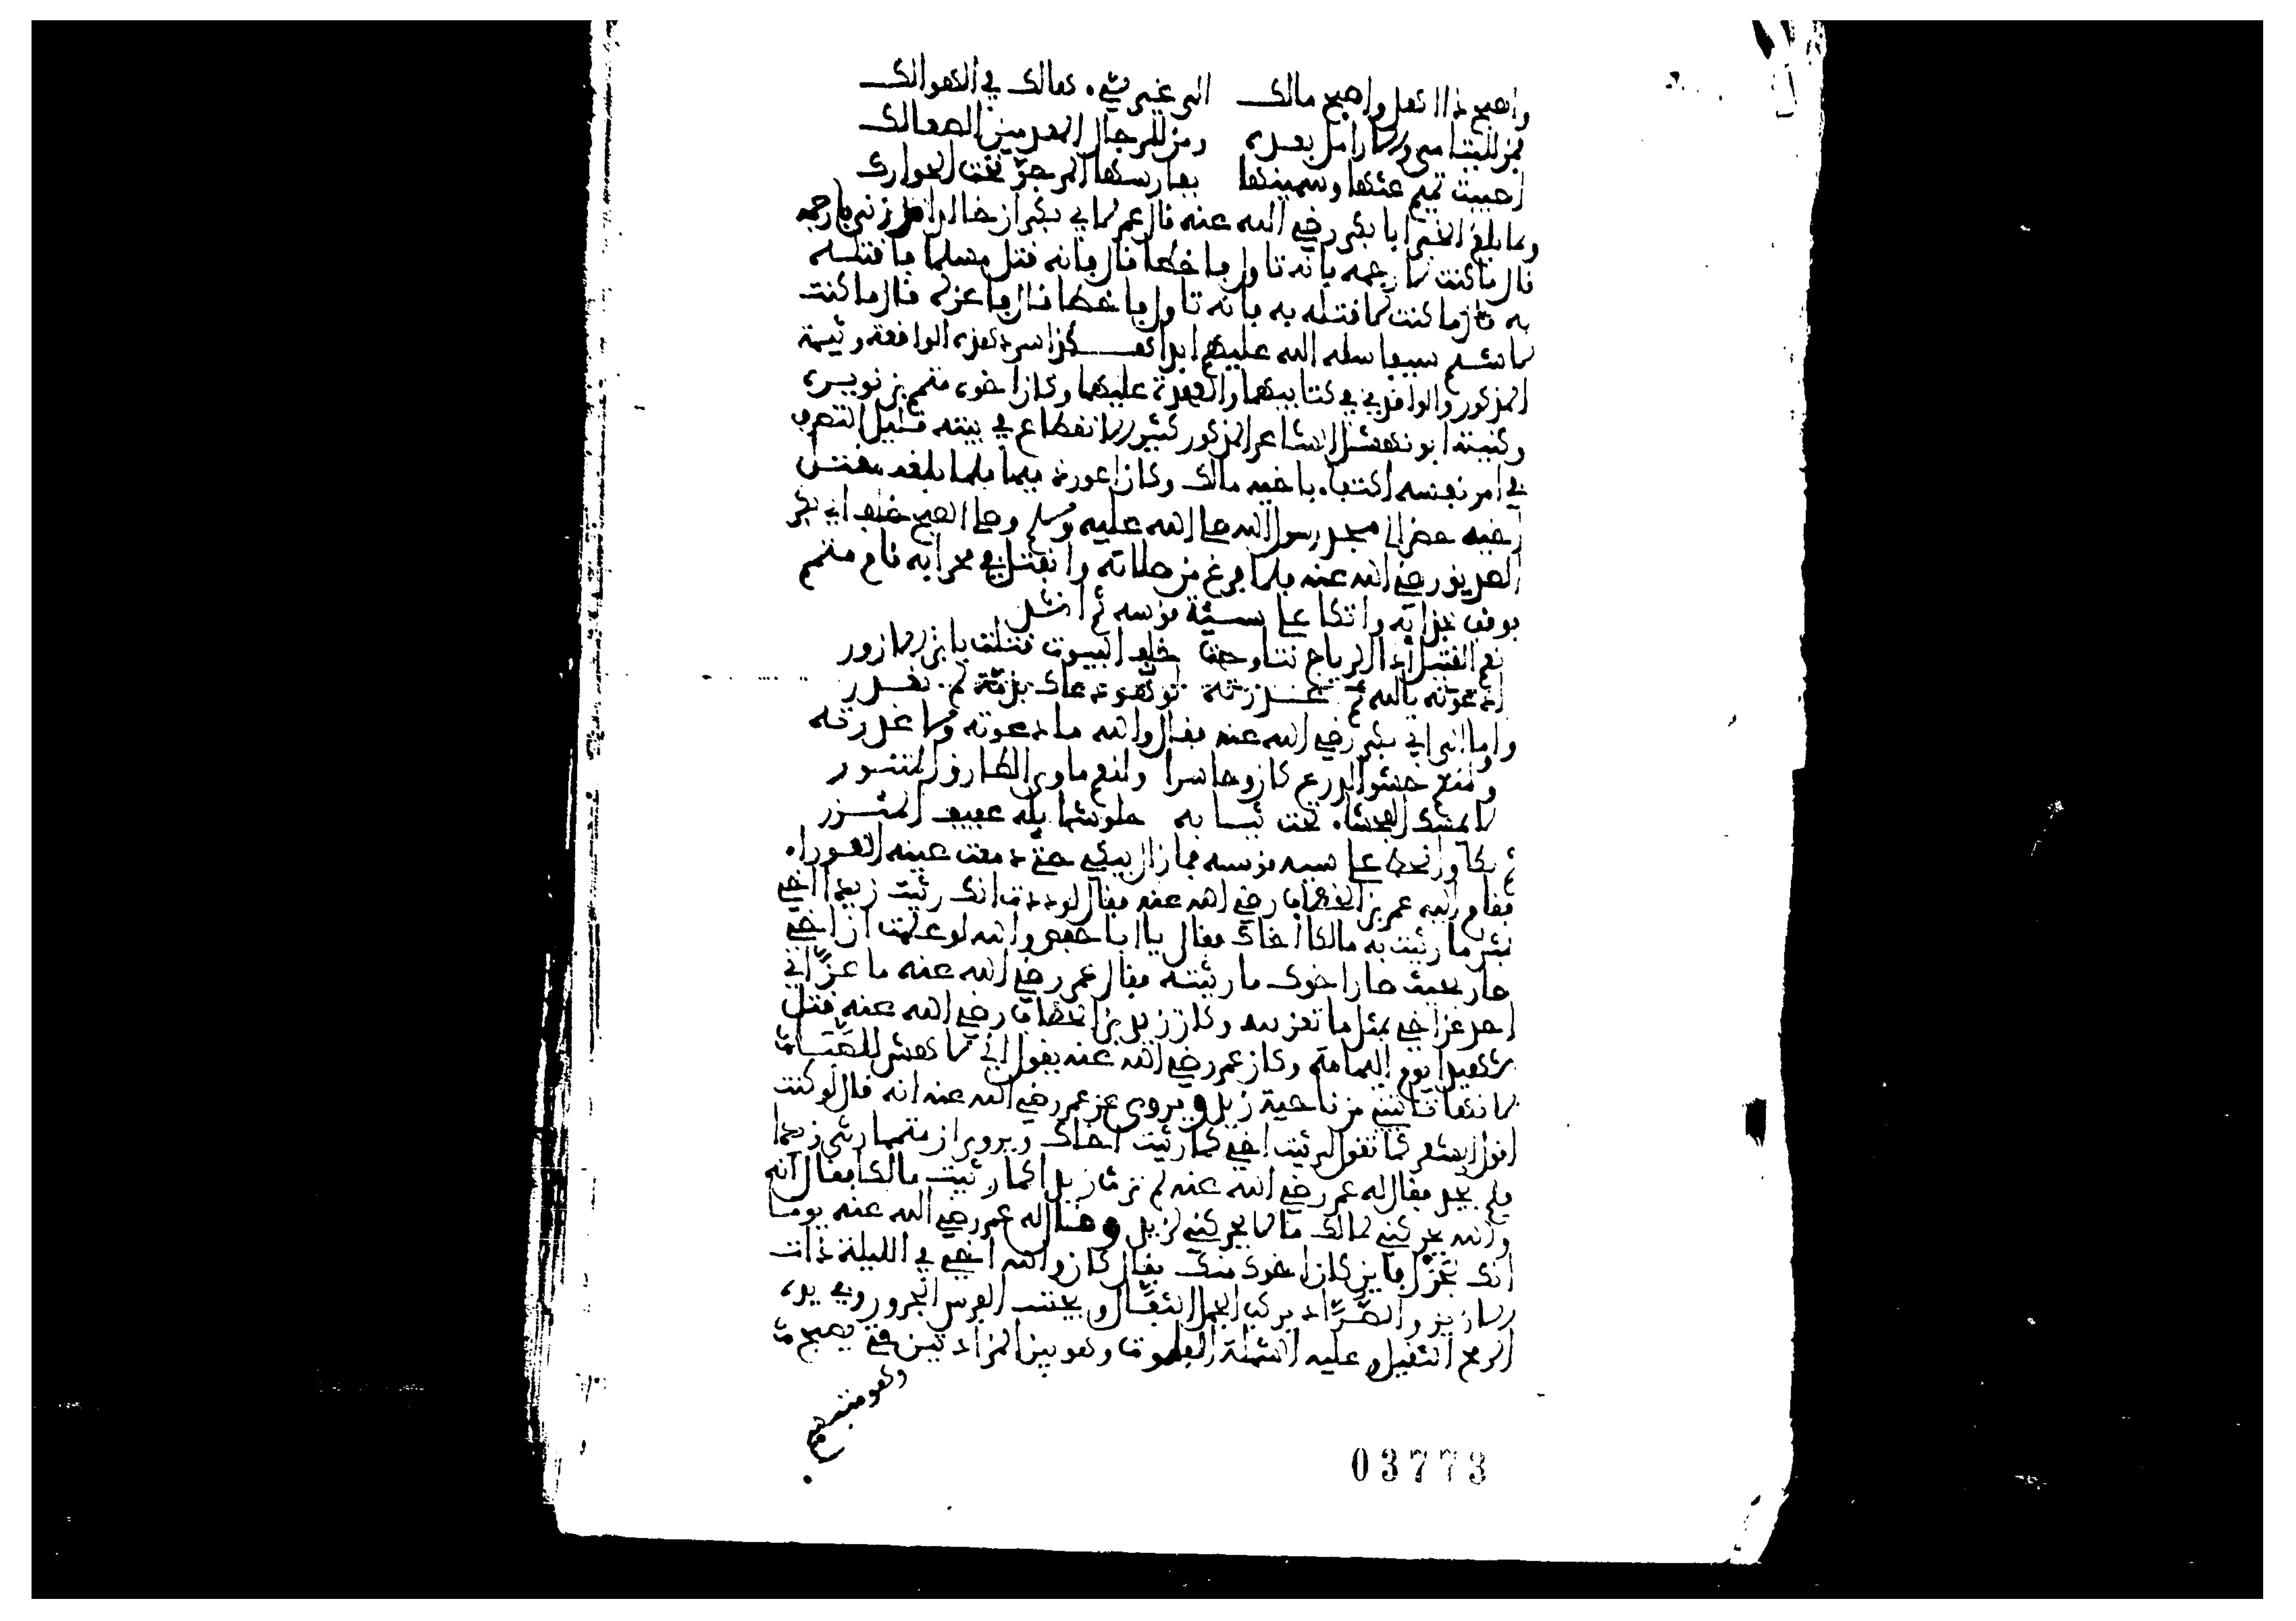 واصبح ذا اهل واصبح مالك الى غير شيء هالك في الهوالك
فمن لليتامى والارامل بعده ومن للرجال المعدمين الصعالك
اصيبت تميم غثها وسمينها بفارسها المرجو تحت الحوارك
ولما بلغ الخبر ابا بكر رضي الله عنه قال عمر لابي بكر ان خالدا قد زنى فارجمه
قال ما كنت لارجمه فانه تاول فاخطا قال فانه قتل مسلما فاقتله
به قال ما كنت لاقتله به فانه تاول فاخطا قال فاعزله قال ما كنت
لاشيم سيفا سله الله عليهم ابدا هكذا سرد هذه الواقعة وثيمة
المذكور والواقدي في كتابيهما والعهدة عليهما وكان اخوه متمم بن نويرة
وكنيته ابو نهشل الشاعر المذكور كثير الانقطاع في بيته قليل التصرف
في امر نفسه اكتفاء باخيه مالك وكان اعور دميما فلما بلغه مقتل
اخيه حضر الى مسجد رسول الله صلى الله عليه وسلم وصلى الصبح خلف ابي بكر
الصديق رضي الله عنه فلما فرغ من صلاته وانفتل في محرابه قام متمم
فوقف بحذائه واتكا على سية قوسه ثم انشد
نعم القتيل اذا الرياح تناوحت خلف البيوت قتلت يا بن الازور
ادعوته بالله ثم غدرته لو هو دعاك بذمة لم يغدر
واما الى ابي بكر رضي الله عنه فقال والله ما دعوته ولا غدرته
ولنعم حشو الدرع كان وحاسرا ولنعم ماوى الطارق المتنور
لا يمسك الفحشاء تحت ثيابه حلو شمائله عفيف المئزر
ثم بكا وانحط على سية قوسه فما زال يبكي حتى دمعت عينه العوراء
فقام اليه عمر بن الخطاب رضي الله عنه فقال لوددت انك رثيت زيدا اخي
بمثل ما رثيت به مالكا اخاك فقال يا ابا حفص والله لو علمت ان اخي
صار بحيث صار اخوك ما رثيته فقال عمر رضي الله عنه ما عزاني
احد عن اخي بمثل ما تعزيته وكان زيد بن الخطاب رضي الله عنه قتل
شهيدا يوم اليمامة وكان عمر رضي الله عنه يقول اني لاهش للصبا
لانها تاتيني من ناحية زيد ويروى عن عمر رضي الله عنه انه قال لو كنت
اقول الشعر كما تقول لرثيت اخي كما رثيت اخاك ويروى ان متمما رثى زيدا
فلم يجد فقال له عمر رضي الله عنه لم ترث زيدا كما رثيت مالكا فقال انه
والله يحركني لمالك ما لا يحركني لزيد وقال له عمر رضي الله عنه يوما
انك لجزل فاين كان اخوك منك فقال كان والله اخي في الليلة ذات
الازيز والصراد يركب الجمل الثفال ويجنب الفرس الجرور وفي يده
الرمح الثقيل وعليه الشملة الفلوت وهو بين المزادتين حتى يصبح
وهو متبسم
03773